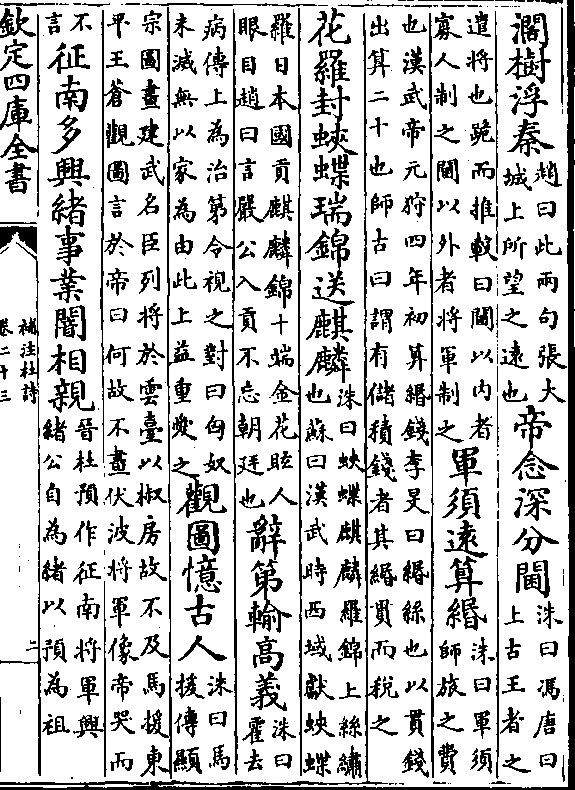 濶樹浮秦
趙曰此兩句張大
城上所望之遠也
帝念深分閫
洙曰馮唐曰
上古王者之
遣將也跪而推轂曰閫以内者
寡人制之閫以外者將軍制之
軍須遠算緡
洙曰軍須
師旅之費
也漢武帝元狩四年初算緡錢李旻曰緡絲也以貫錢
出算二十也師古曰謂有儲積錢者其緡貫而税之
花羅封蛺蝶瑞錦送麒麟
洙曰蛺蝶麒麟羅錦上絲繡
也蘇曰漢武時西域獻蛺蝶
羅日本國貢麒麟錦十端金花眩人
眼目趙曰言嚴公入貢不忘朝廷也
辭第輸高義
洙曰
霍去
病傳上為治第令視之對曰匈奴
未滅無以家為由此上益重愛之
觀圖憶古人
洙曰馬
援傳顯
宗圖畫建武名臣列將於雲臺以椒房故不及馬援東
平王蒼觀圖言於帝曰何故不畫伏波將軍像帝哭而
不
言
征南多興緒事業闇相親
晉杜預作征南將軍興
緒公自為緒以預為祖
欽定四庫全書
補注杜詩
卷二十三
二